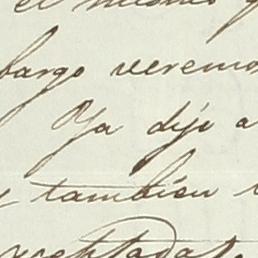 el mismo
bargo veremo
Ya dije a
y tambien